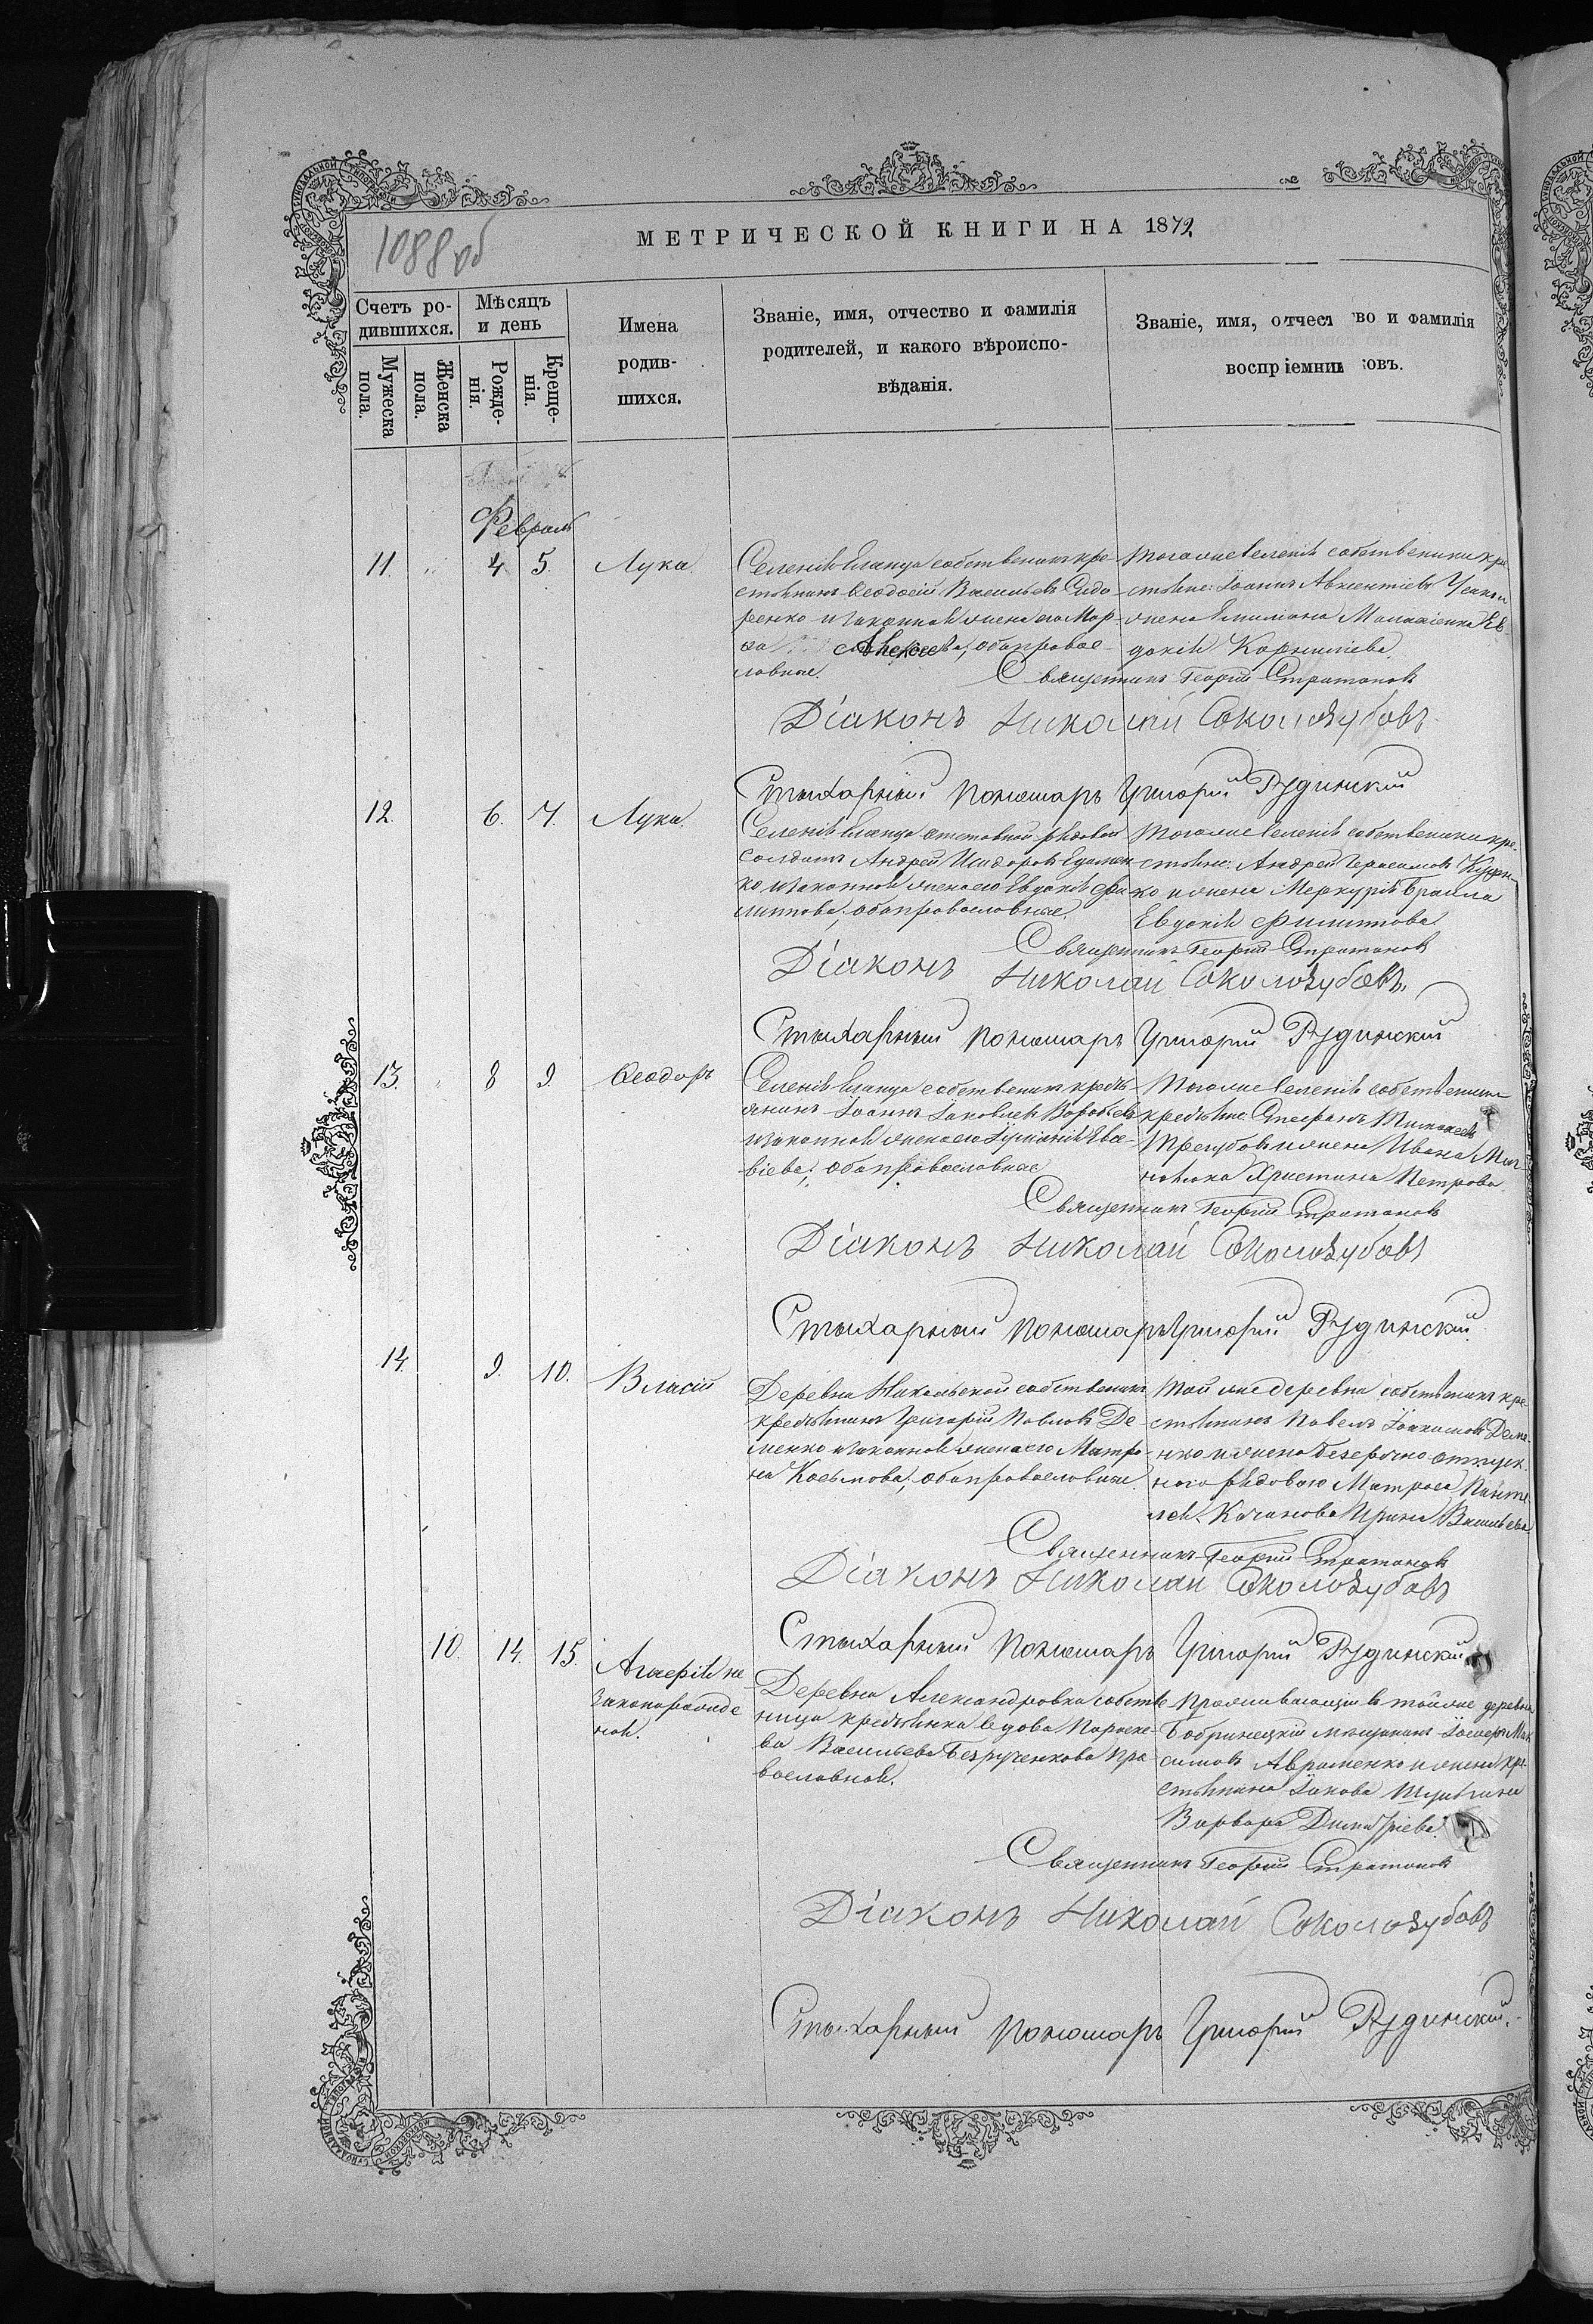 1088 об
МЕТРИЧЕСКОЙ КНИГИ НА 1872
Счетъ ро-
дившихся.
Мѣсяцъ
и день
Имена
родив-
шихся.
Званіе, имя, отчество и фамилія
родителей, и какого вѣроиспо-
вѣданія.
Званіе, имя, отчест во и фамилія
воспріемник овъ.
Мужеска
пола.
Женска
пола.
Рожде-
нія.
Креще-
нія.
Февраль
11. 4 5. Лука.
Селенія Еланца собственникъ кре-
стьянинъ Ѳеодосій Васильевъ Сидо-
ренко и законная жена его Мар-
Алексеева, оба правос-
лавные.
Тогоже селенія собственники кре
стьяне: Іоаннъ Авксентіевъ
жена Емиліана Ев-
докія Корниліева.
Священникъ Георгій Стратоновъ
Діаконъ Николай Соколозубовъ
Стихарный пономарь Григорій Рудинский
12. 6. 7. Лука.
Селенія Еланца отставной рядовой
солдатъ Андрей Исидоровъ
ко и законная жена его Евдокія Фи-
липпова, оба православные.
Тогоже селенія собственники кре-
стьяне: Андрей Герасимовъ
ко и жена Меркурія Браила
Евдокія Филиппова
Священникъ Георгій Стратоновъ
Діаконъ Николай Соколозубовъ.
Стихарный пономарь Григорий Рудинский
13. 8 9. Ѳеодоръ
Селенія Еланца собственникъ кресть-
янинъ Іоаннъ Іаковлевъ Воробьевъ
и законная жена его Іуліанія Евсе-
віева, оба православные
Тогоже селенія собственники
крестьяне Стефанъ
Трегубовъ и жена Ивана
Христина Петрова
Священникъ Георгій Стратоновъ
Діаконъ Николай Соколозубовъ
Стихарный пономарь Григорий Рудинский.
14. 9. 10. Власій
Деревни Никольской собственникъ
крестьянинъ Григорій Павловъ Де-
менко и законная жена его Матро-
на Косьмова, оба православные.
Той же деревни собственникъ кре-
стьянинъ Павелъ Іоакимовъ Деме-
нко и жена безсрочно-отпуск-
ного рядоваго Матроса Панте-
лея Качанова Ирина Васильева
Священникъ Георгій Стратоновъ
Діаконъ Николай Соколозубовъ
Стихарный пономарь Григорий Рудинский
10. 14. 15. Агаѳія не-
законорожде
ная.
Деревни Александровка собстве
нница крестьянка вдова Параске-
ва Васильева Безрученкова пра-
вославная.
Проживающіе в тойже деревни
Бобринецкій мѣщанинъ Іосифъ Мак
симовъ Авраменко и жена кре-
стьянина Іакова
Варвара Димитріева.
Священникъ Георгій Стратоновъ
Діаконъ Николай Соколозубовъ
Стихарный пономарь Григорий Рудинский.